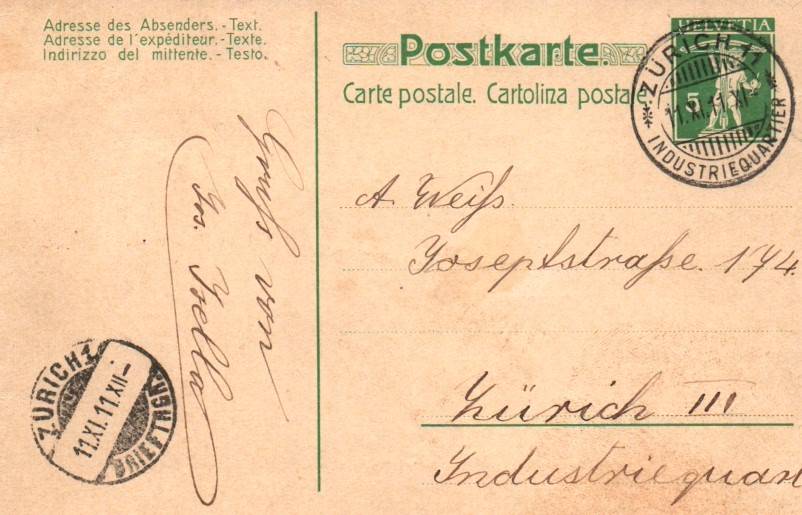 Adresse des Absenders.-Text.
Adresse de l'expéditeur.-Texte.
Indirizzo del mittente.-Testo.
Postkarte.
Carte postale. Cartolina postale
HELVETIA
5
ZÜRICH 11
11.XI.11.XI-
INDUSTRIEQUARTIER
Gruß von
Jos.
A. Weiß.
Josephstraße. 174.
Zürich III
Industriequar
ZÜRICH 1
11.XI.11.XII-
BRIEFTRGSA